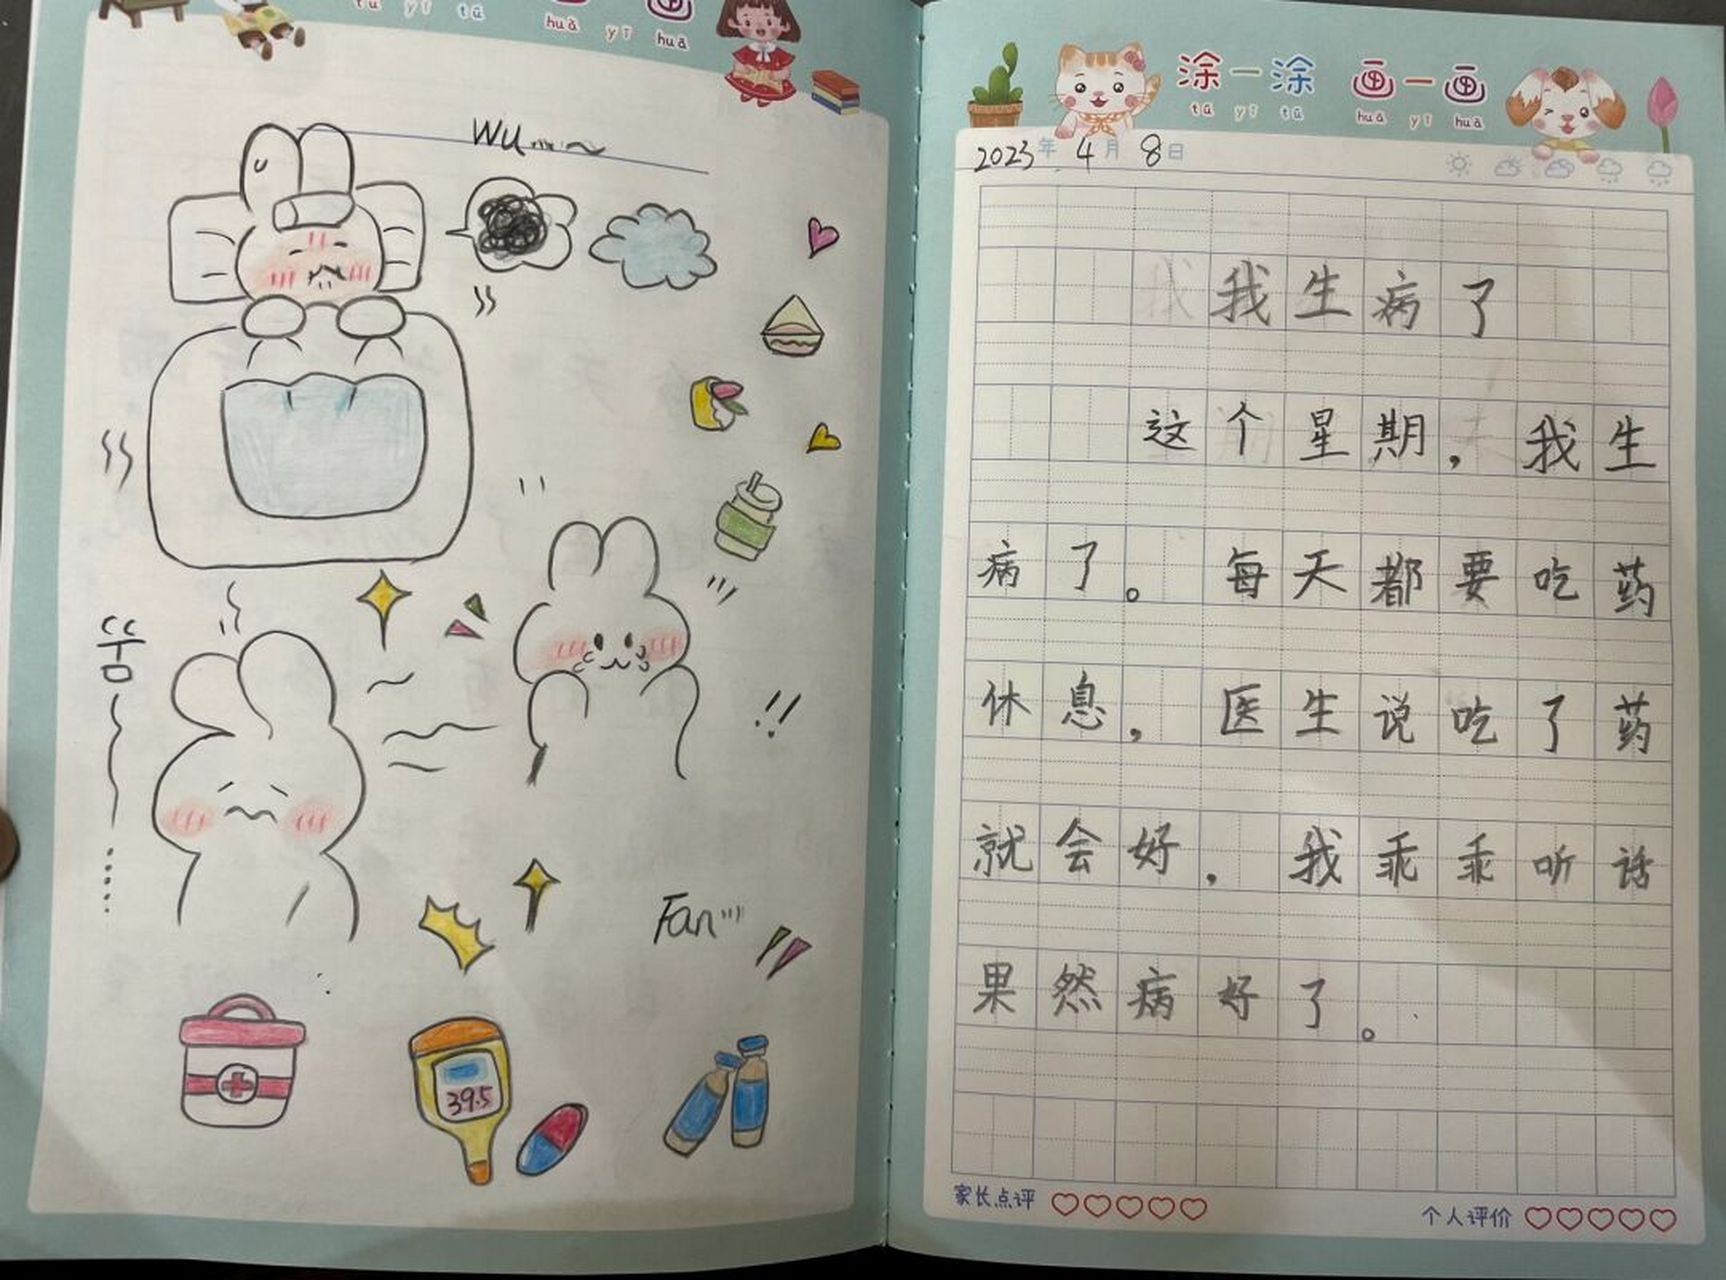 tú yī tú
huà yī huà
Wu....~
뿜
Fan'''
39.5
涂一涂 画一画
tú yī tú huà yī huà
2023年 4月 8日
我我生病了
这个星期，我生
病了。每天都要吃药
休息，医生说吃了药
就会好．我乖乖听话
果然病好了。
家长点评
个人评价